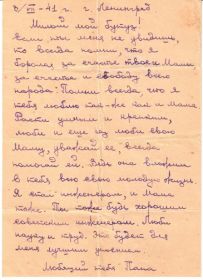 5/VII-41 г. г. Ленинград
Милой мой бутуз!
Если ты меня не увидишь,
то всегда помни, что я
боролся за счастье твоей Мамы,
за счастье и свободу всего
народа. Помни всегда что я
тебя люблю так-же как и Мама.
Расти умным и крепким,
люби и еще раз люби свою
Маму, уважай ее, всегда
помогай ей. Ведь она вложила
в тебя всю свою молодую жизнь.
Я стал инженером, и Мама
тоже. Ты тоже будь хорошим
советским инженером. Люби
науку и труд. Это будет для
меня лучшим утешением.
Любящий тебя Папа